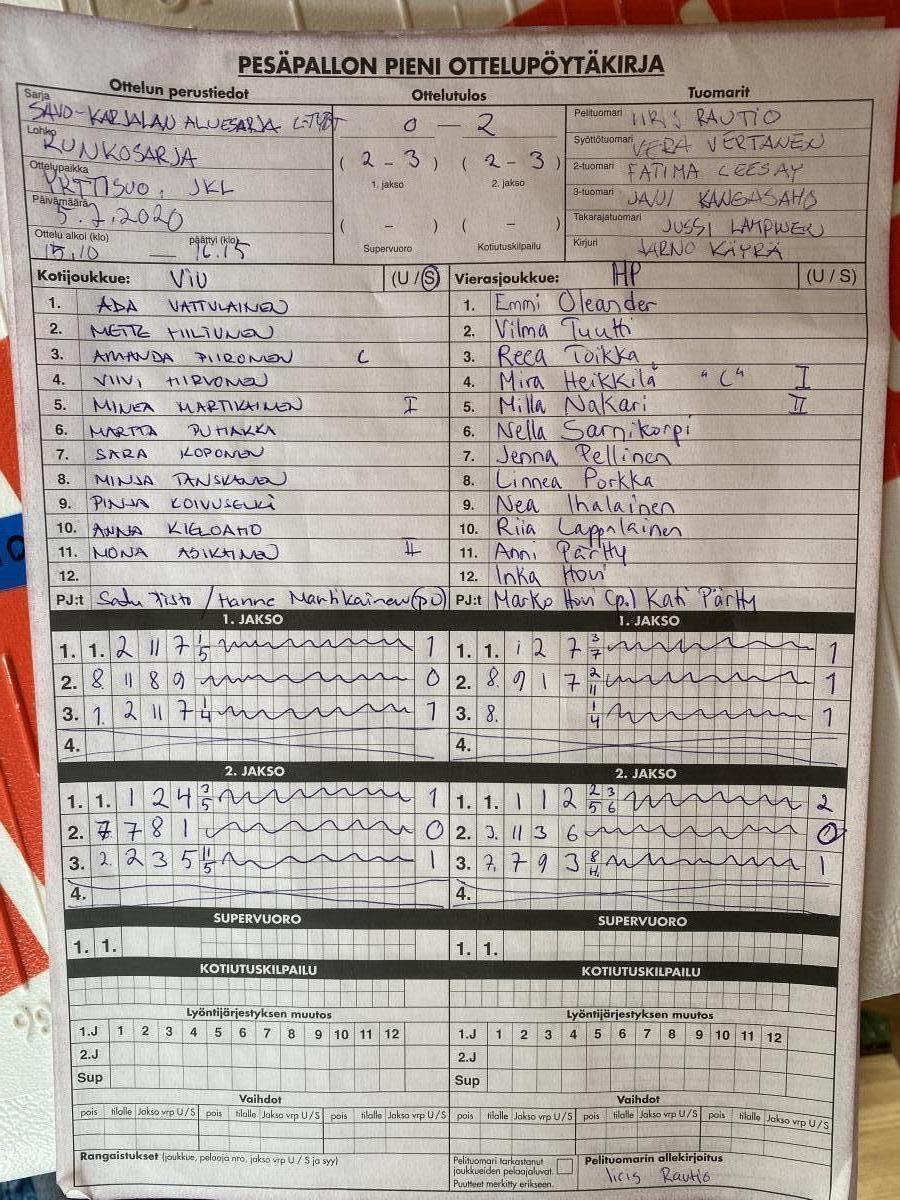 PESÄPALLON PIENI OTTELUPÖYTÄKIRJA
Ottelun perustiedot
Ottelutulos
Tuomarit
Sarja
SAVO-KARJALAN ALUESARJA C-TYTÖT
Lohko
RUNKOSARJA
Ottelupaikka
YRTTISUO, JKL
Päivämäärä
5.7.2020
Ottelu alkoi (klo) päättyi (klo)
15.10 — 16.15
0 — 2
( 2 - 3 ) ( 2 - 3 )
1. jakso 2. jakso
( - ) ( - )
Supervuoro Kotiutuskilpailu
Pelituomari IIRIS RAUTIO
Syöttötuomari VERA VERTANEN
2-tuomari FATIMA CEESAY
3-tuomari JANI KANGASAHO
Takarajatuomari JUSSI LAMPINEN
Kirjuri JARNO KÄYRÄ
Kotijoukkue: ViU (U / S)
1. ADA VATTULAINEN
2. METTE HILTUNEN
3. AMANDA PIIRONEN C
4. VIIVI HIRVONEN
5. MINEA MARTIKAINEN I
6. MARTTA PUHAKKA
7. SARA KOPONEN
8. MINJA TANSKANEN
9. PINJA KOIVUSELKÄ
10. ANNA KIELOAHO
11. MONA ASIKAINEN II
12.
PJ:t Satu /Hanne Martikainen (pj)
Vierasjoukkue: HP (U / S)
1. Emmi Oleander
2. Vilma Tuutti
3. Reea Toikka
4. Mira Heikkilä "C" I
5. Milla Nakari II
6. Nella Sarnikorpi
7. Jenna Pellinen
8. Linnea Porkka
9. Nea Ihalainen
10. Riia Lappalainen
11. Anni Pärtty
12. Inka Hovi
PJ:t Marko Hovi (pj) Kati Pärtty
1. JAKSO
1. 1. 2 11 7 1/5 1
2. 8. 11 8 9 0
3. 1. 2 11 7 1/4 1
4.
1. JAKSO
1. 1. 1 2 7 3/7 1
2. 8. 9 1 7 2/11 1
3. 8. 1/4 1
4.
2. JAKSO
1. 1. 1 2 4 3/5 1
2. 7 7 8 1 0
3. 2. 2 3 5 11/5 1
4.
2. JAKSO
1. 1. 1 1 2 2/5 3/6 2
2. 3. 11 3 6 0
3. 7. 7 9 3 8/H. 1
4.
SUPERVUORO
1. 1.
SUPERVUORO
1. 1.
KOTIUTUSKILPAILU
KOTIUTUSKILPAILU
Lyöntijärjestyksen muutos
1.J 1 2 3 4 5 6 7 8 9 10 11 12
2.J
Sup
Lyöntijärjestyksen muutos
1.J 1 2 3 4 5 6 7 8 9 10 11 12
2.J
Sup
Vaihdot
pois tilalle Jakso vrp U / S pois tilalle Jakso vrp U / S pois tilalle Jakso vrp U / S
Vaihdot
pois tilalle Jakso vrp U / S pois tilalle Jakso vrp U / S pois tilalle Jakso vrp U / S
Rangaistukset (joukkue, pelaaja nro, jakso vrp U / S ja syy)
Pelituomari tarkastanut
joukkueiden pelaajaluvat.
Puutteet merkitty erikseen.
Pelituomarin allekirjoitus
Iiris Rautio